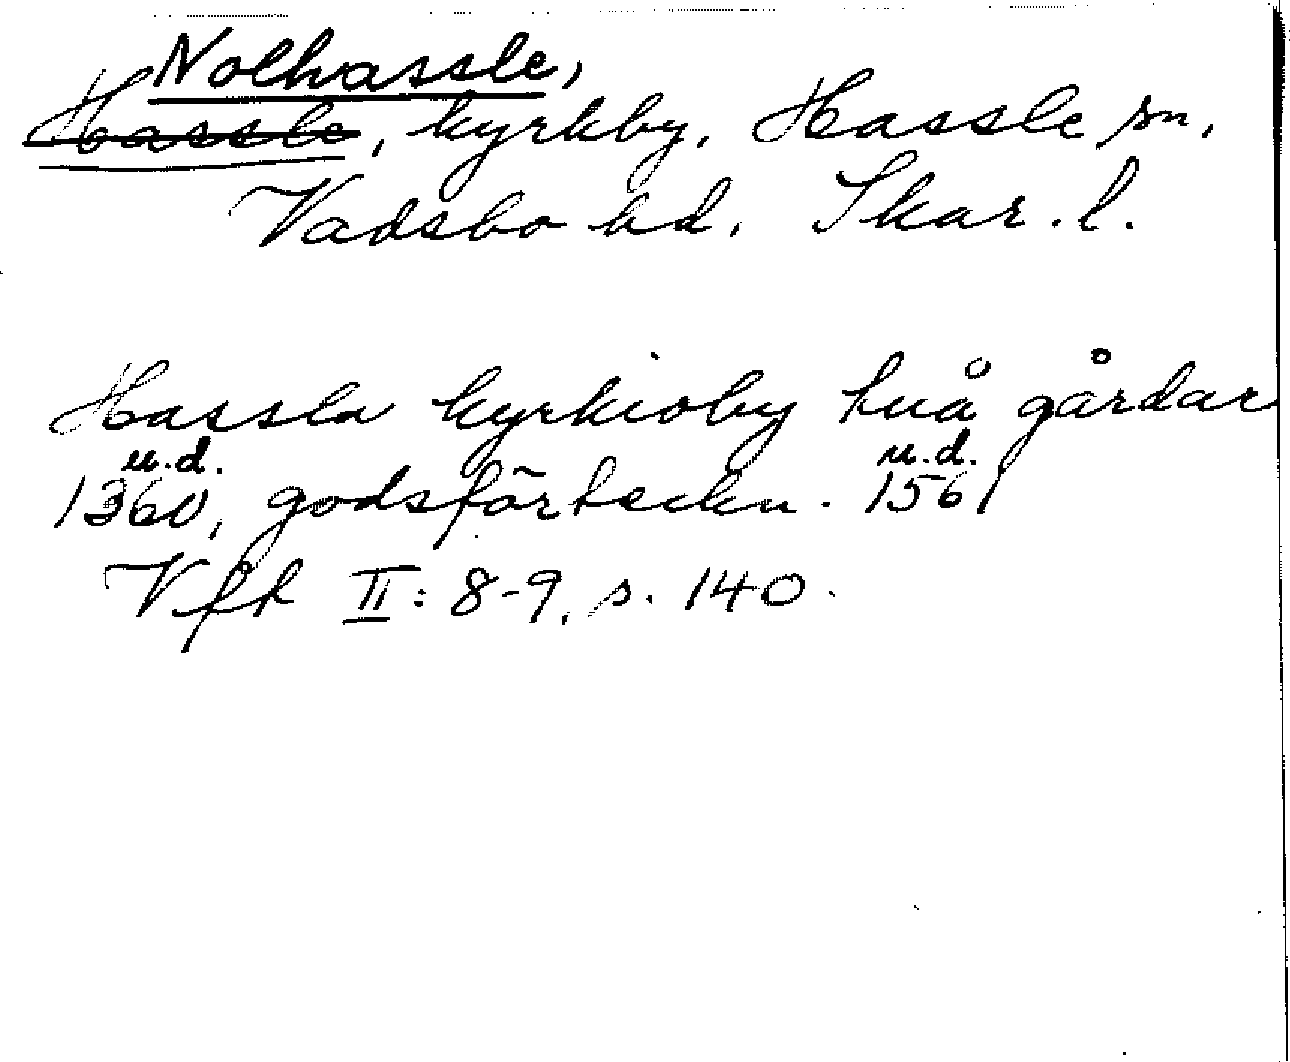 Nolhassle,
Hassle, kyrkby, Hassle sn,
Vadsbo hd, Skar. l.
Hassla kyrkioby tuå gårdar
u.d. u.d.
1360, godsförteckn. 1561
Vfk II: 8-9, s. 140.